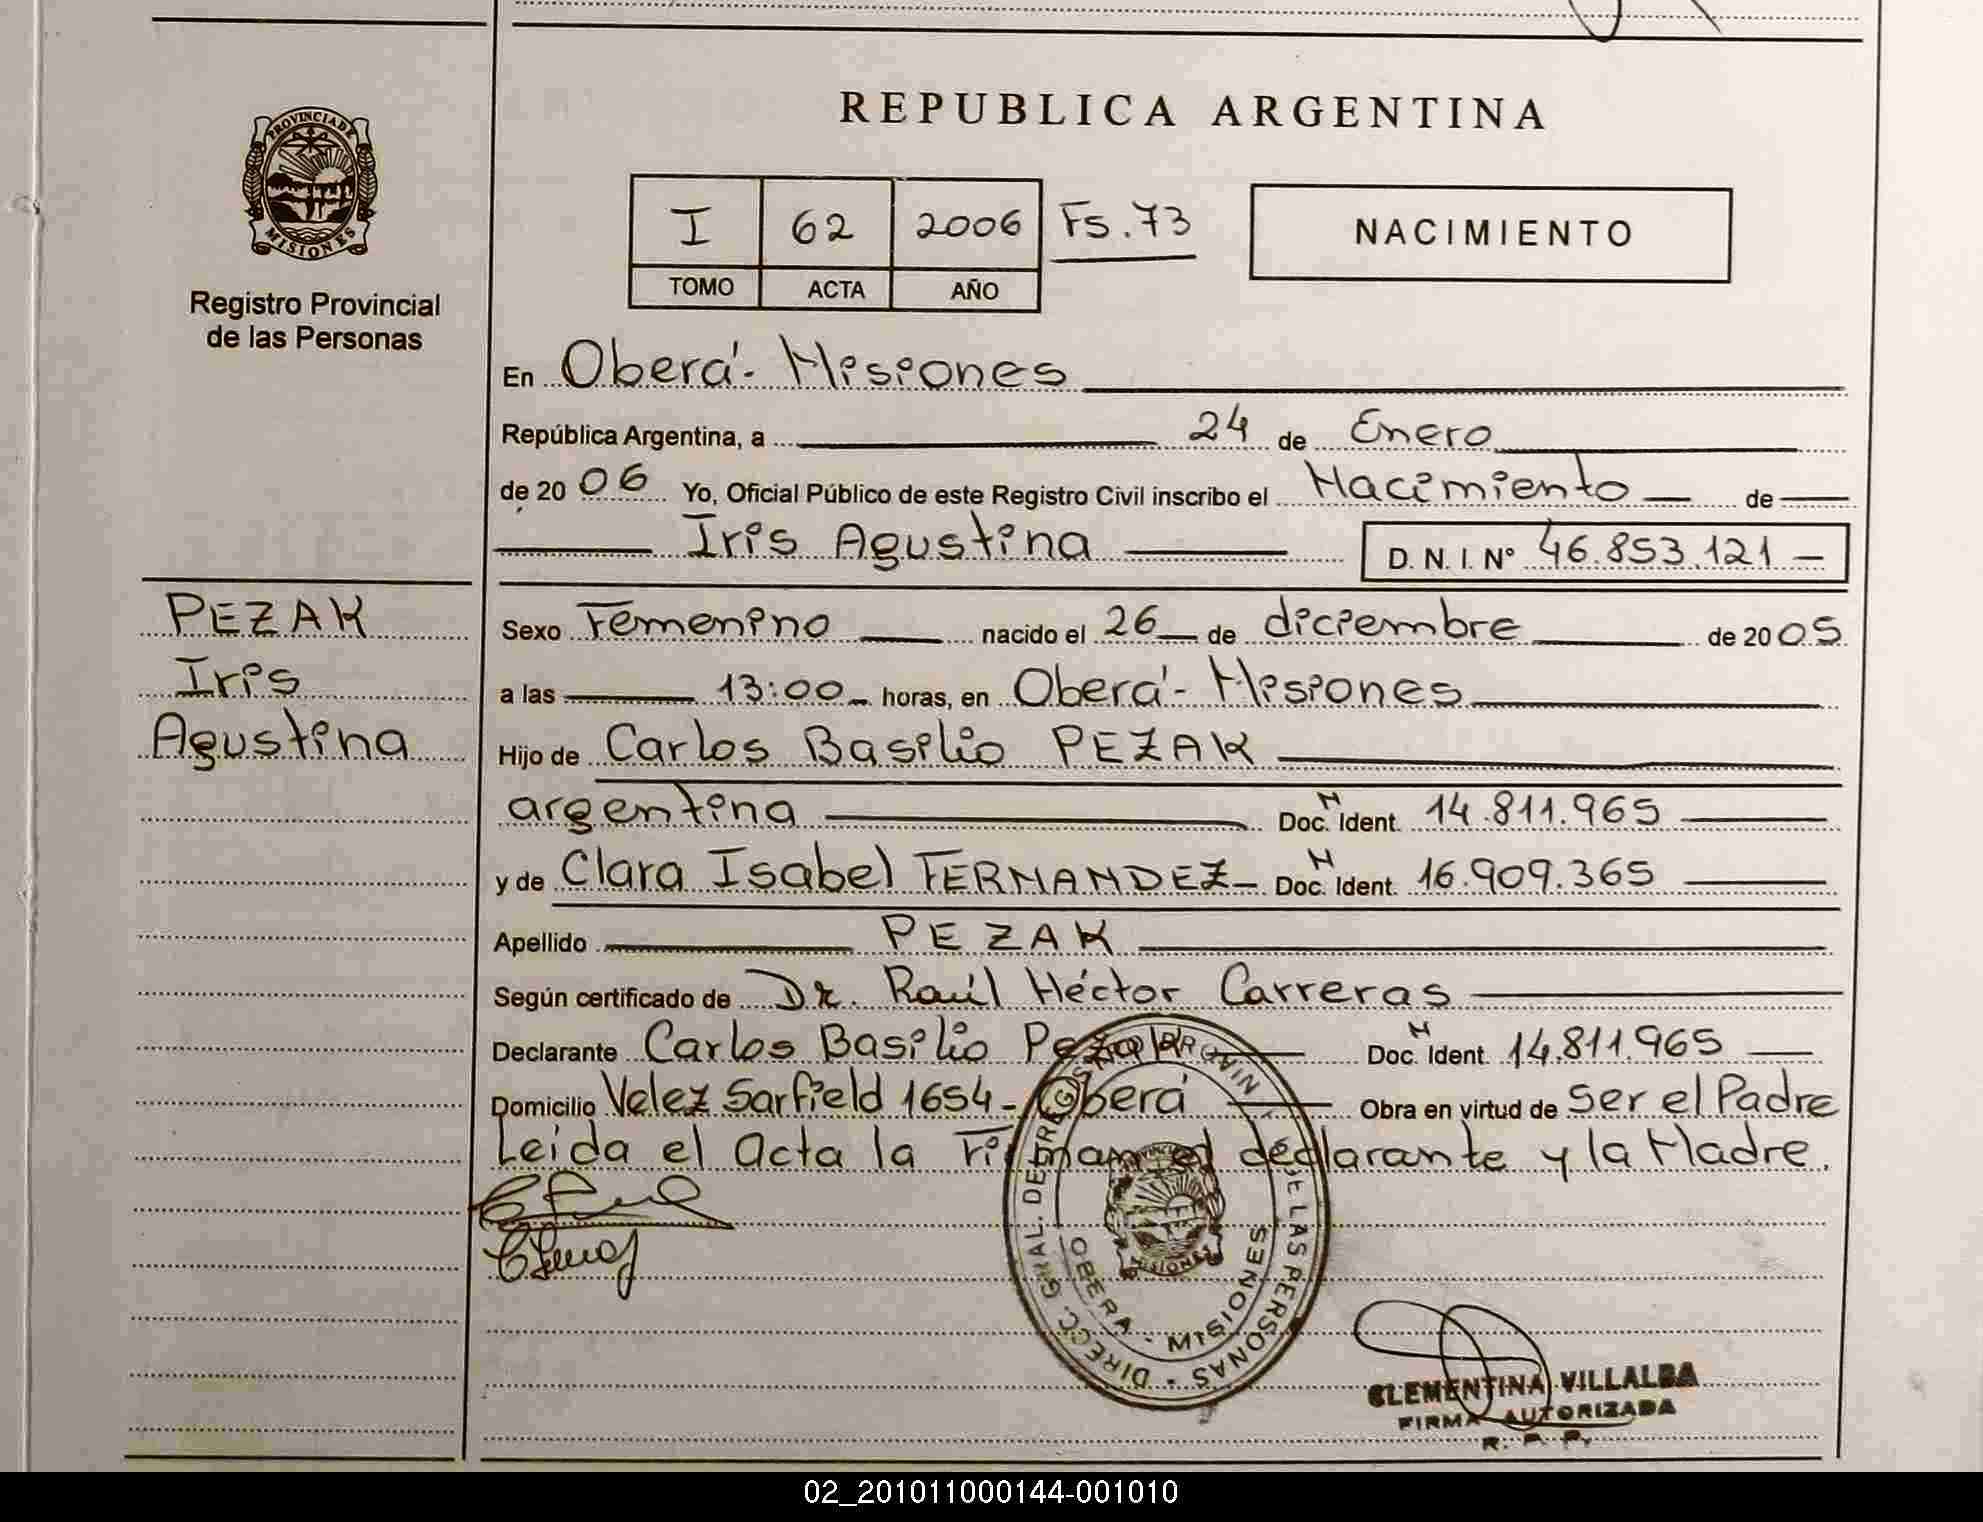 REPUBLICA ARGENTINA
PROVINCIA DE
MISIONES
Registro Provincial
de las Personas
I 62 2006 Fs. 73
TOMO ACTA AÑO
NACIMIENTO
En Oberá - Misiones
República Argentina, a 24 de Enero
de 20 06 Yo, Oficial Público de este Registro Civil inscribo el Nacimiento de
Iris Agustina D. N. I. Nº 46.853.121
PEZAK
Iris
Agustina
Sexo Femenino nacido el 26 de diciembre de 20 05
a las 13:00 horas, en Oberá - Misiones
Hijo de Carlos Basilio PEZAK
argentina Doc. N Ident. 14.811.965
y de Clara Isabel FERNANDEZ Doc. N Ident. 16.909.365
Apellido PEZAK
Según certificado de Dr. Raúl Héctor Carreras
Declarante Carlos Basilio Pezak Doc. N Ident. 14.811.965
Domicilio Velez Sarfield 1654 - Oberá Obra en virtud de Ser el Padre
Leida el Acta la Firman el declarante y la Madre.
DIRECC. GRAL. DE REGISTRO PROVIN. DE LAS PERSONAS
OBERA - MISIONES
MISIONES
CLEMENTINA VILLALBA
FIRMA AUTORIZADA
R. P. P.
02_201011000144-001010